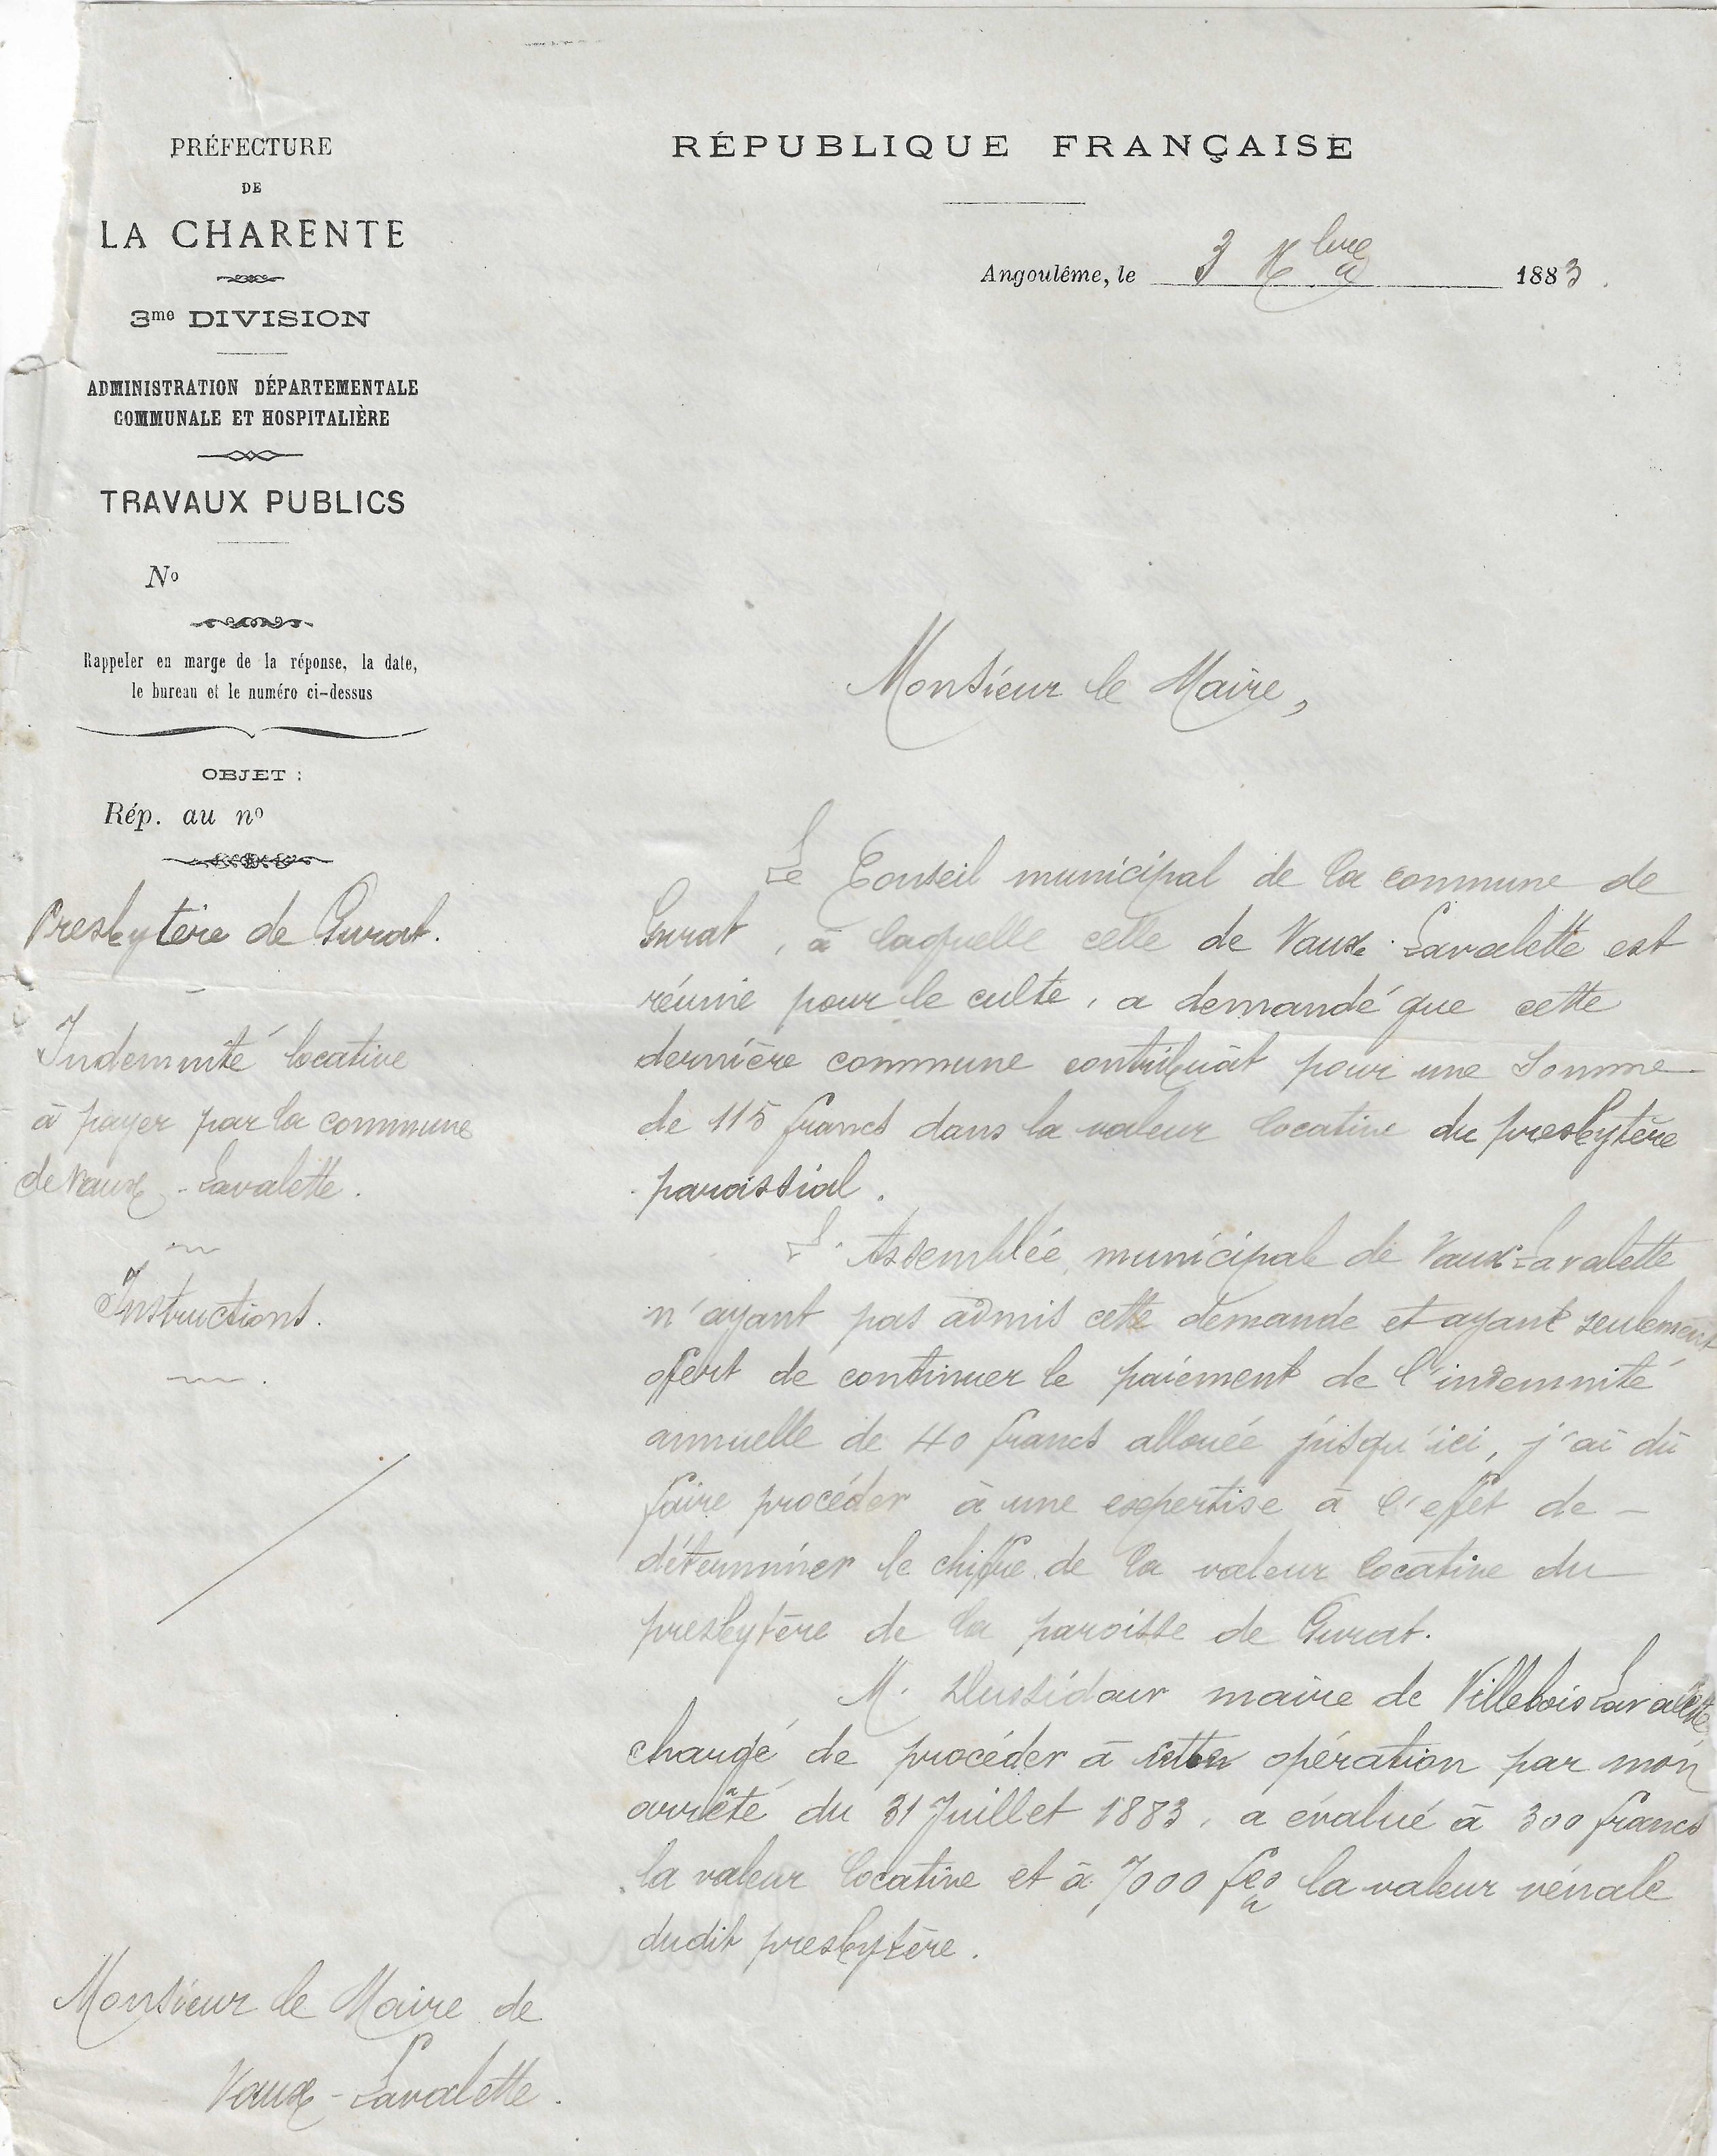 PRÉFECTURE
DE
LA CHARENTE
3me DIVISION
ADMINISTRATION DÉPARTEMENTALE
COMMUNALE ET HOSPITALIÈRE
TRAVAUX PUBLICS
No
Rappeler en marge de la réponse, la date,
le bureau et le numéro ci-dessus
OBJET :
Rép. au no
Presbytère de Gurat.
Indemnité locative
à payer par la commune
de Vaux-Lavalette.
Instructions.
Monsieur le Maire de
Vaux-Lavalette.
RÉPUBLIQUE FRANÇAISE
Angoulême, le 3 Xbre 1883.
Monsieur le Maire,
Le Conseil municipal de la commune de
Gurat, à laquelle celle de Vaux-Lavalette est
réunie pour le culte, a demandé que cette
dernière commune contribuât pour une somme
de 115 francs dans la valeur locative du presbytère
paroissial.
L'Assemblée municipale de Vaux-Lavalette
n'ayant pas admis cette demande et ayant seulement
offert de continuer le paiement de l'indemnité
annuelle de 40 francs allouée jusqu'ici, j'ai dû
faire procéder à une expertise à l'effet de
déterminer le chiffre de la valeur locative du
presbytère de la paroisse de Gurat.
M. Dussidour maire de Villebois Lavalette
chargé de procéder à cette opération par mon
arrêté du 31 Juillet 1883, a évalué à 300 francs
la valeur locative et à 7000 fcs la valeur vénale
dudit presbytère.